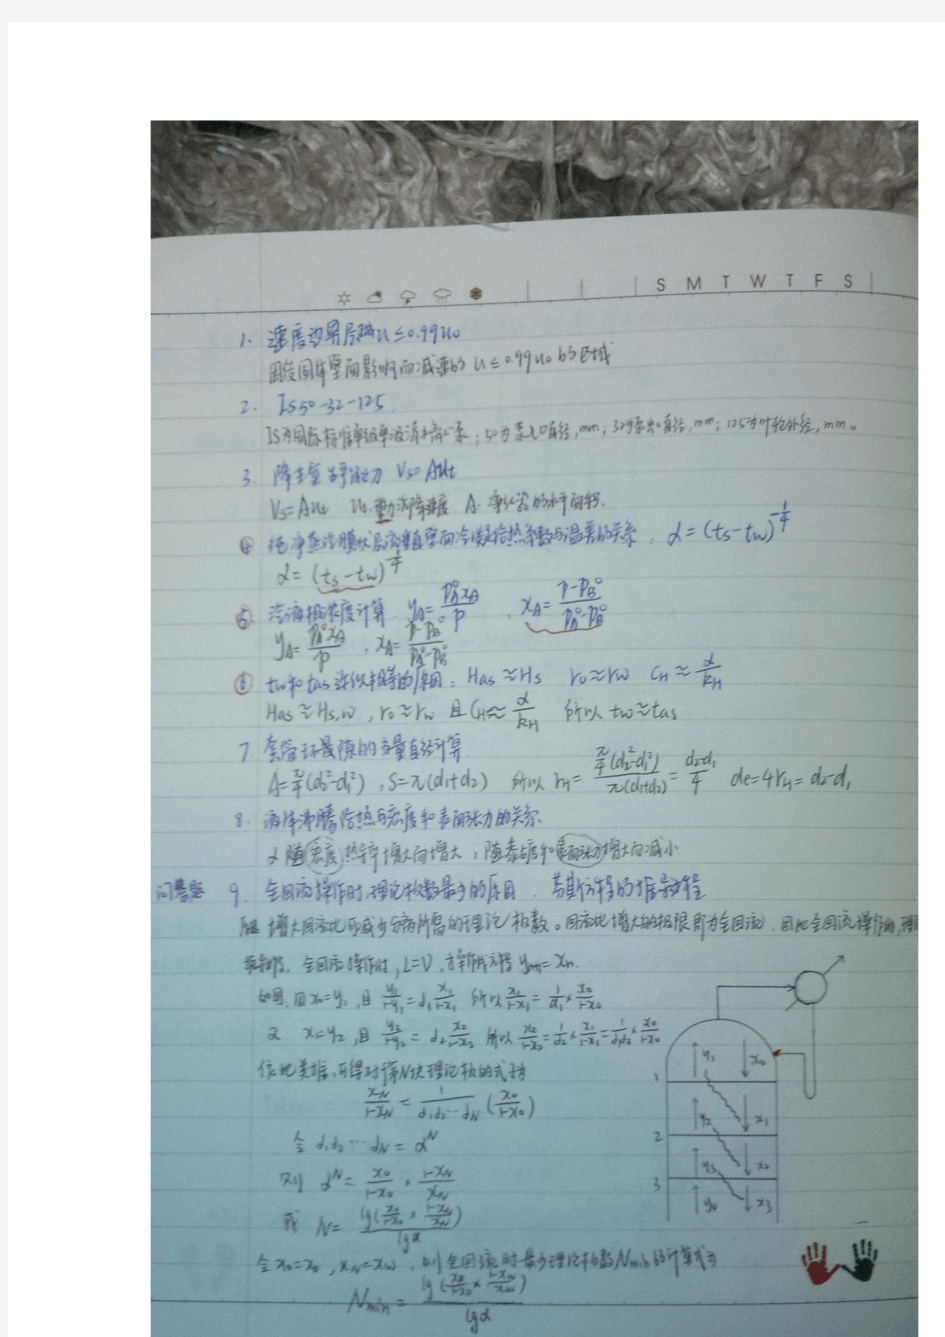 S M T W T F S
1. 速度边界层碱 u≤0.99u₀
因受固体壁面影响而减速的 u≤0.99u₀的区域
2. IS50-32-125
IS为国际标准单级单吸清水离心泵；50为泵入口直径，mm；32为泵出口直径，mm；125为叶轮外径，mm。
3. 降尘室生产能力 Vs=Aut
Vs=Aut ut: 沉降速度 A: 的水平面积.
④ 纯净蒸汽膜状层流垂直壁面冷凝给热系数与温差的关系. α=(ts-tw)^(-1/4)
α=(ts-tw)^(-1/4)
⑤ 汽液相浓度计算 yA=pA°xA/p , xA=(p-pB°)/(pA°-pB°)
yA=pA°xA/p , xA=(p-pB°)/(pA°-pB°)
⑥ tw和tas近似相等的原因: Has≈Hs r₀≈rw CH≈α/kH
Has≈Hs,w , r₀≈rw 且 CH≈α/kH 所以 tw≈tas
7 套管环隙的当量直径计算
A=π/4(d₂²-d₁²) , S=π(d₁+d₂) 所以 rH=π/4(d₂²-d₁²)/π(d₁+d₂)=(d₂-d₁)/4 de=4rH=d₂-d₁
8. 液体沸腾给热与密度和表面张力的关系
α随密度热导率增大而增大，随黏度和表面张力增大而减小
问答题 9. 全回流操作时,理论板数最少的原因. 芬斯克方程的推导过程
增大回流比可减少分离所需的理论板数。回流比增大的极限即为全回流. 因此全回流操作时,理
全回流操作时, L=V, 操作线方程 yn+1=xn.
如图, 因x₀=y₁, 且 y₁/(1-y₁)=α₁ x₁/(1-x₁) 所以 x₁/(1-x₁)=1/α₁×x₀/(1-x₀)
又 x₁=y₂, 且 y₂/(1-y₂)=α₂ x₂/(1-x₂) 所以 x₂/(1-x₂)=1/α₂×x₁/(1-x₁)=1/α₁α₂×x₀/(1-x₀)
依此类推, 可得对第N块理论板的式子为
xN/(1-xN)=1/(α₁α₂…αN)(x₀/(1-x₀))
令 α₁α₂…αN=α^N
则 α^N=x₀/(1-x₀)×(1-xN)/xN
或 N=lg(x₀/(1-x₀)×(1-xN)/xN)/lgα
令x₀=xD, xN=xW, 则全回流时最少理论板数Nmin的计算式为
Nmin=lg(xD/(1-xD)×(1-xW)/xW)/lgα
y₁ x₀
1
y₂ x₁
2
y₃ x₂
3
y₄ x₃